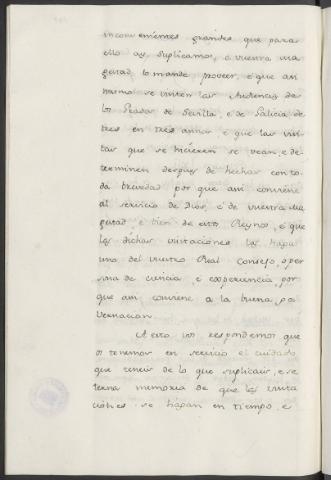 inconvenientes grandes que para
ello ay, suplicamos, a vuestra ma
gestad lo mande proveer, e que ani
mismo se visiten las Audiencias de
los Grados de Sevilla, e de Galicia de
tres en tres annos e que las visi
tas que se hicieren se vean, e de
terminen despues de hechas con to
da brevedad por que ansi conviene
al servicio de Dios, e de vuestra Ma
gestad, e bien de estos Reynos, e que
las dichas visitaciones las haga
uno del vuestro Real Consejo, o per
sona de ciencia e experiencia, por
que ansi conviene a la buena go
vernacion.
A esto vos respondemos que
os tenemos en servicio el cuidado
que teneis de lo que suplicais, e se
terna memoria de que las visita
ciones se hagan en tiempo, e